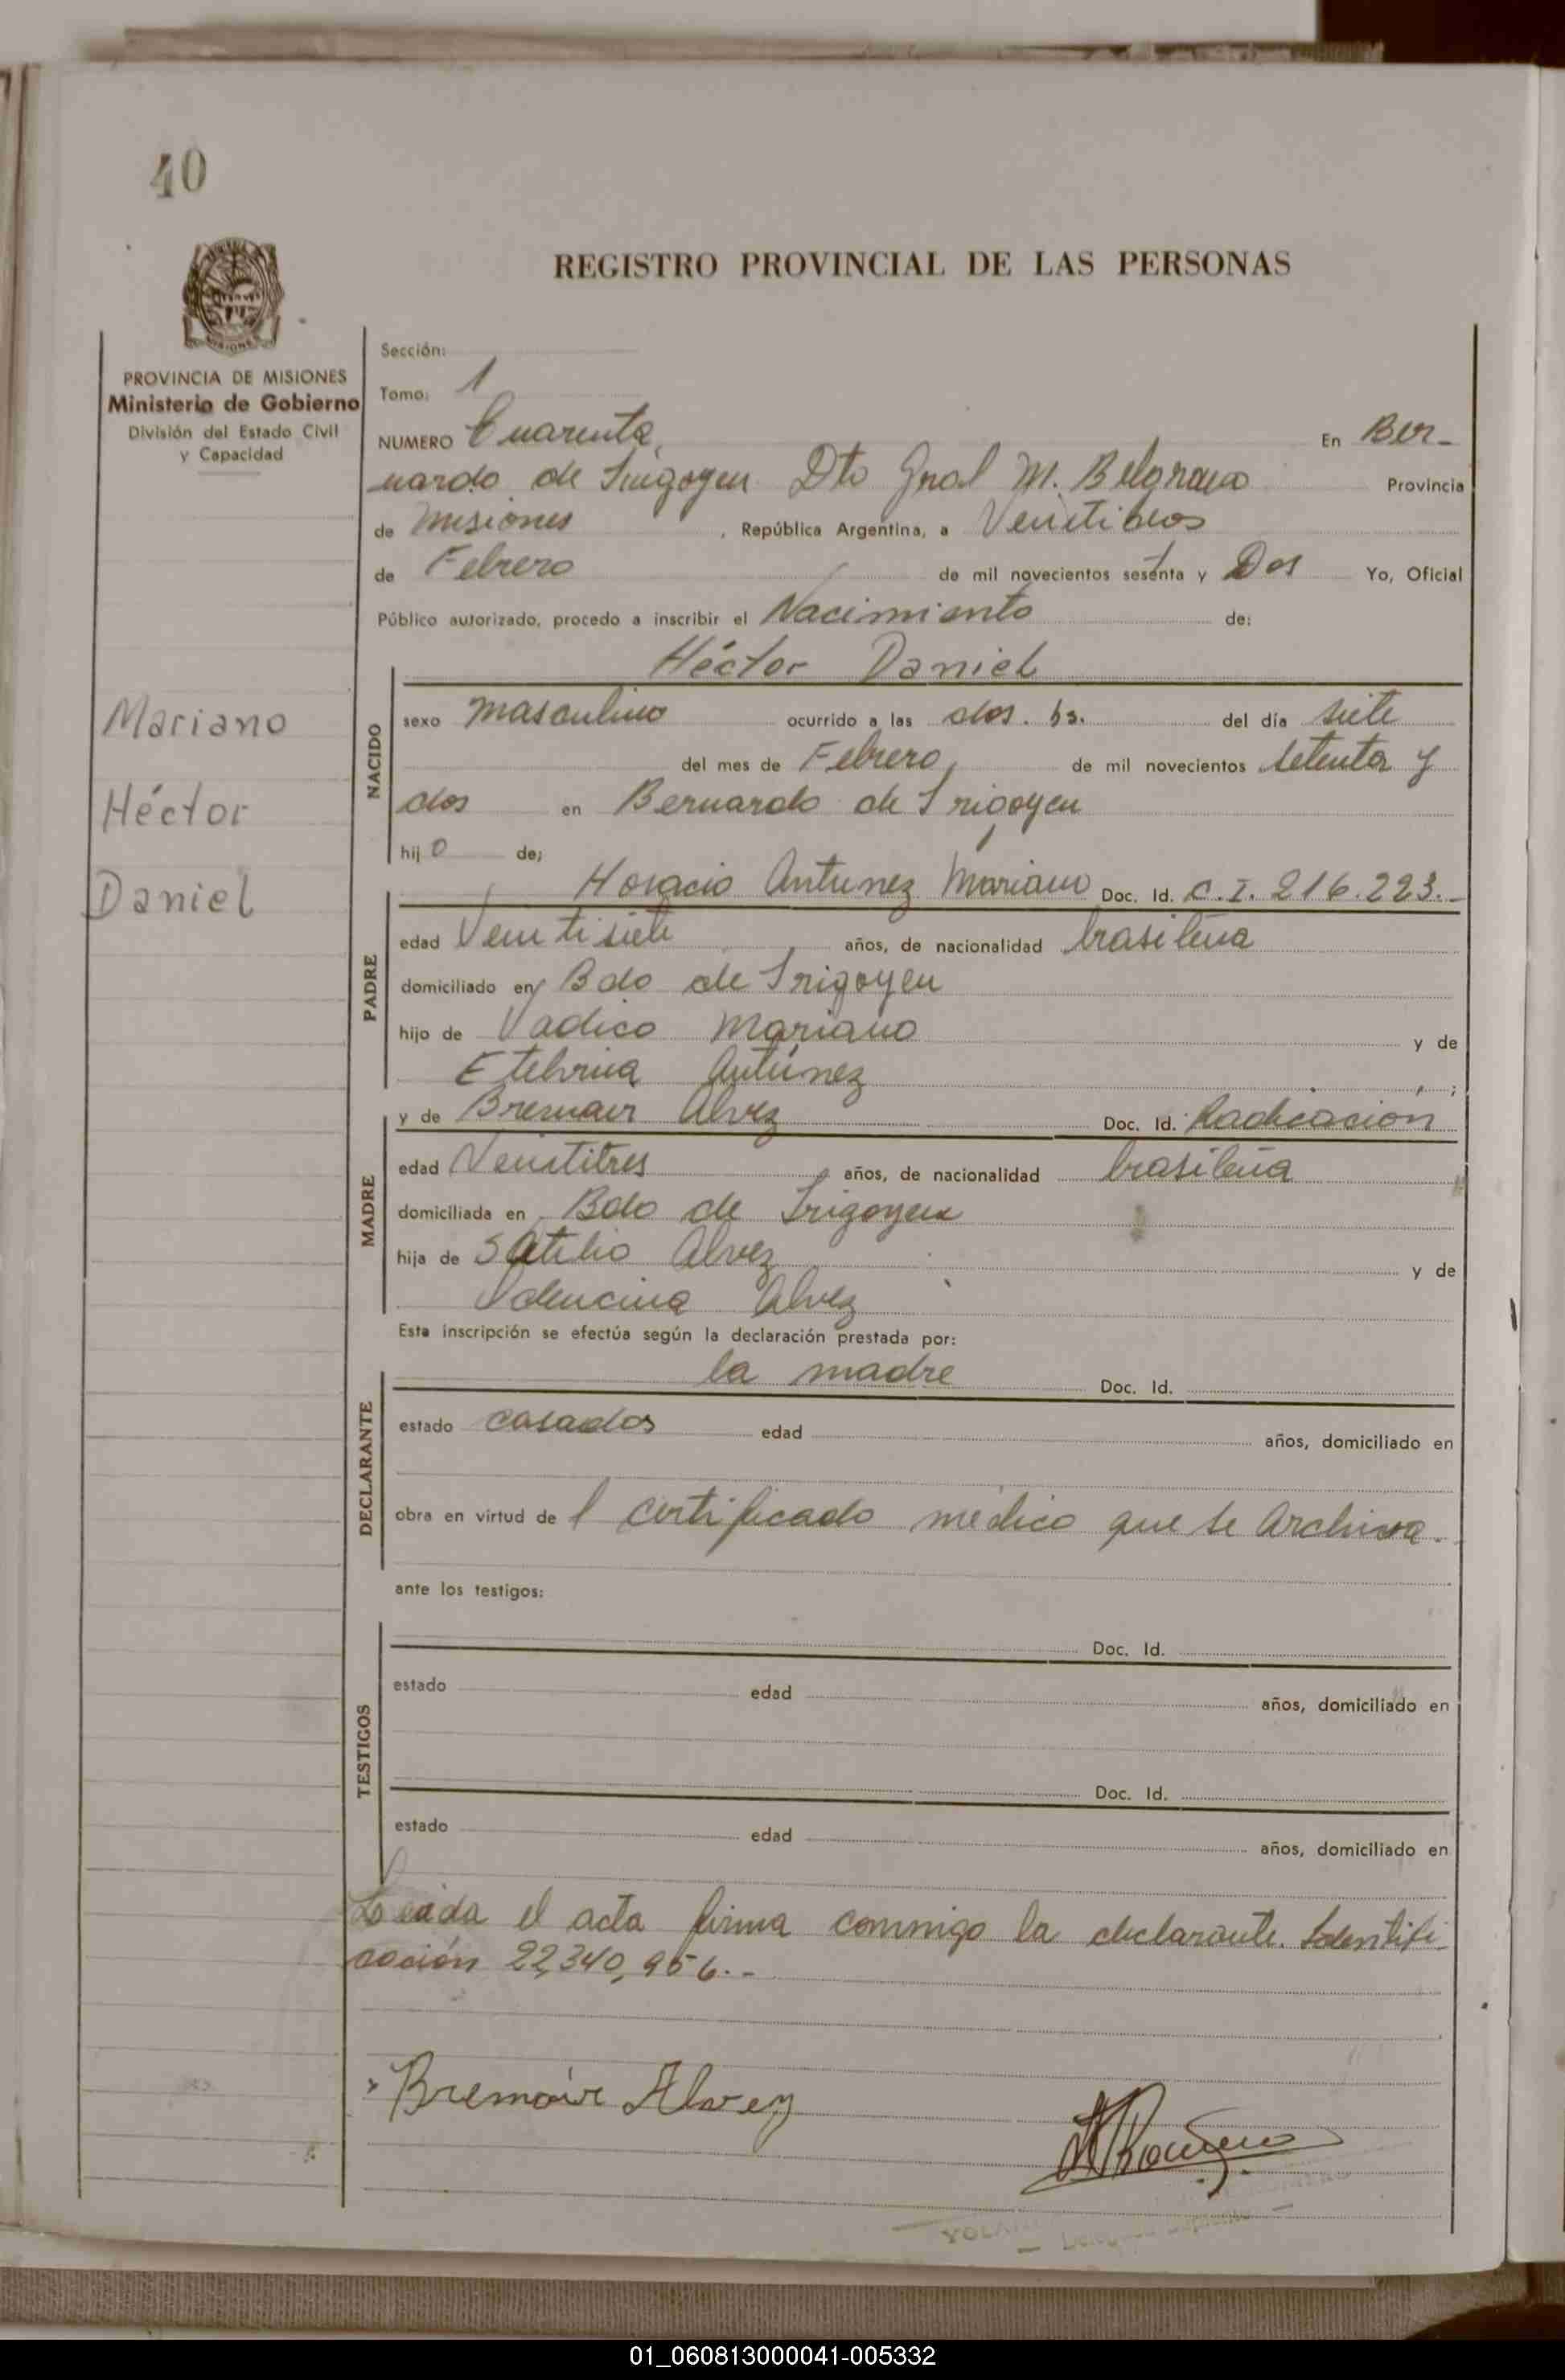 40
REGISTRO PROVINCIAL DE LAS PERSONAS
PROVINCIA DE MISIONES
Ministerio de Gobierno
División del Estado Civil
y Capacidad
Mariano
Héctor
Daniel
Sección:
Tomo: 1
NUMERO Cuarenta En Ber-
nardo de Irigoyen Dto Gral M. Belgrano Provincia
de Misiones, República Argentina, a Veintidos
de Febrero de mil novecientos sesenta y Dos Yo, Oficial
Público autorizado, procedo a inscribir el Nacimiento de:
Héctor Daniel
NACIDO
sexo masculino ocurrido a las dos. hs. del día siete
del mes de Febrero, de mil novecientos setenta y
dos en Bernardo de Irigoyen
hijo de;
Horacio Antunez Mariano Doc. Id. C.I. 216.223.-
PADRE
edad Veintisiete años, de nacionalidad brasileña
domiciliado en Bdo de Irigoyen
hijo de Vadico Mariano y de
Etelvina Antúnez ;
y de Bremair Alvez Doc. Id. Radicación
MADRE
edad Veintitres años, de nacionalidad brasileña
domiciliada en Bdo de Irigoyen
hija de Satilio Alvez y de
Alvez
Esta inscripción se efectúa según la declaración prestada por:
la madre Doc. Id.
DECLARANTE
estado casados edad años, domiciliado en
obra en virtud del certificado médico que se archiva.
ante los testigos:
TESTIGOS
Doc. Id.
estado edad años, domiciliado en
Doc. Id.
estado edad años, domiciliado en
Leida el acta firma conmigo la declarante. Identifi-
cación 22,340,956.-
Bremair Alvez
01_060813000041-005332